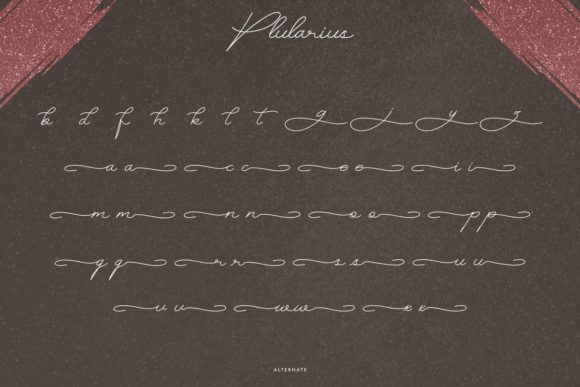 Plularius
b d f h k l t g j y z
a a c c e e i i
m m n n o o p p
q q r r s s u u
v v w w x x
ALTERNATE